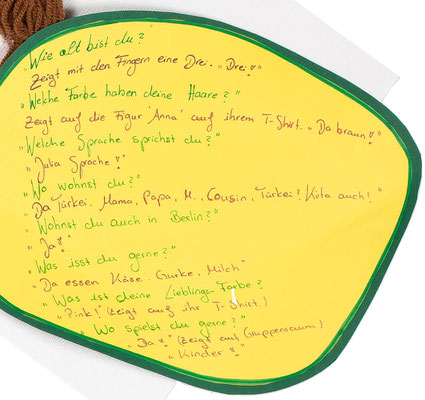 „Wie alt bist du?"
Zeigt mit den Fingern eine Drei. „Drei!"
„Welche Farbe haben deine Haare?"
Zeigt auf die Figur 'Anna' auf ihrem T-Shirt. „Da braun!"
„Welche Sprache sprichst du?"
„Julia Sprache!"
„Wo wohnst du?"
„Da Türkei. Mama, Papa, M., Cousin, Türkei! Kita auch!"
„Wohnst du auch in Berlin?"
„Ja!"
„Was isst du gerne?"
„Da essen Käse. Gurke, Milch"
„Was ist deine Lieblings-Farbe?
„Pink! (zeigt auf ihr T-Shirt.)
„Wo spielst du gerne?"
„Da!" (zeigt auf Gruppenraum)
„Kinder!"